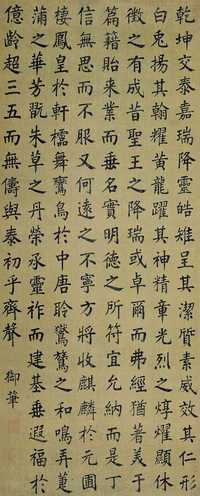 乾坤交泰嘉瑞降靈皓雉呈其潔質素威效其仁形
白兔揚其翰耀黃龍躍其神精章光烈之焞耀顯休
徵之有成昔聖王之降瑞或卓爾而弗經猶著美于
篇籍貽來業而垂名實明德之所符宜允納而是丁
信無思而不服又何遠之不寧方將收麒麟於元囿
棲鳳皇於軒檽舞鸞鳥於中唐聆鸑鷟之和鳴弄蓂
蒲之華芳翫朱草之丹榮承靈祚而建基垂遐福於
億齡超三五而無儔與泰初乎齊聲
御筆